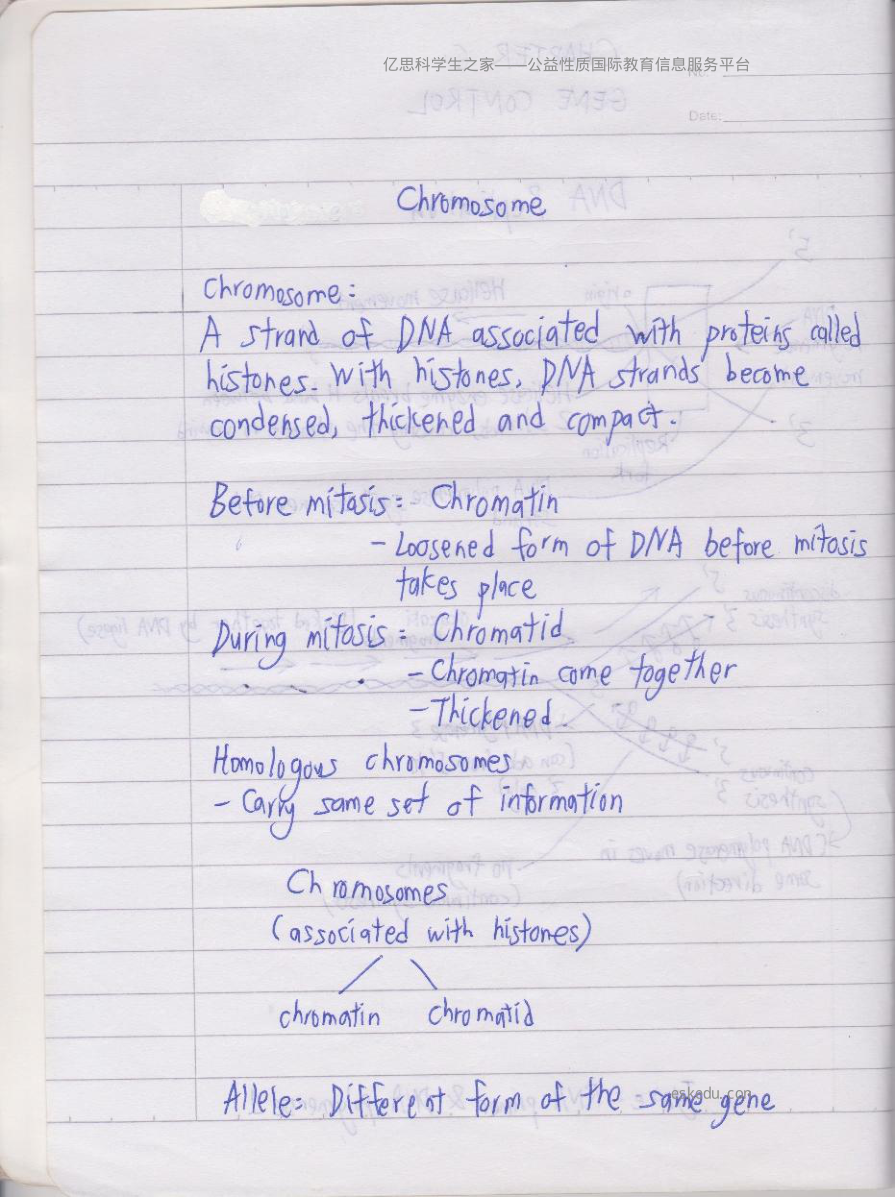 亿思科学生之家——公益性质国际教育信息服务平台
No.:
Date:
Chromosome
Chromosome:
A strand of DNA associated with proteins called
histones. With histones, DNA strands become
condensed, thickened and compact.
Before mitosis: Chromatin
- Loosened form of DNA before mitosis
takes place
During mitosis: Chromatid
- Chromatin come together
- Thickened
Homologous chromosomes
- Carry same set of information
Chromosomes
(associated with histones)
chromatin chromatid
Allele: Different form of the same gene